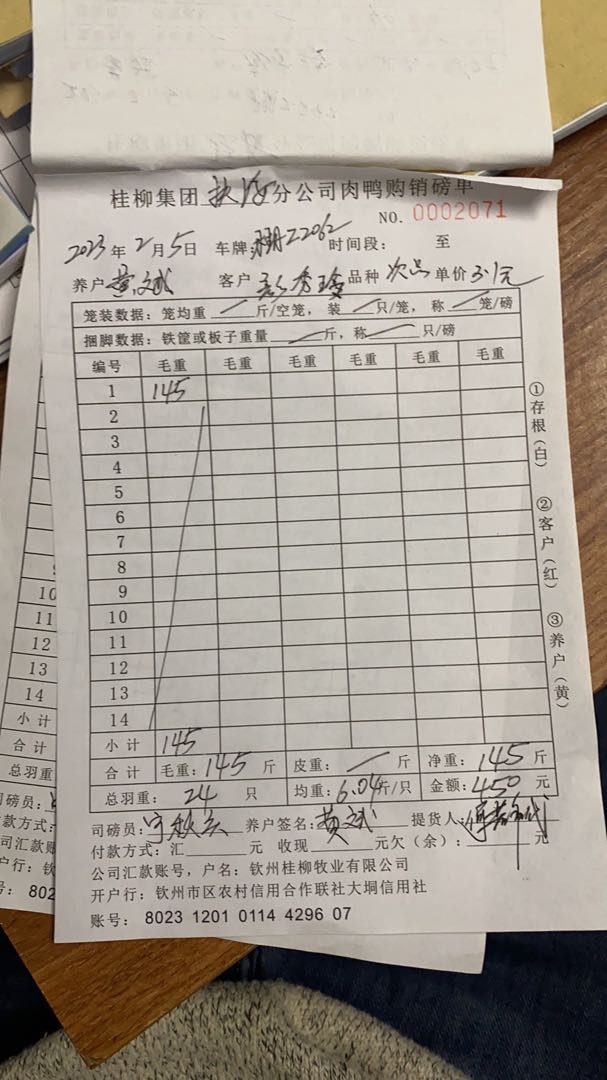 桂柳集团 分公司肉鸭购销磅单
NO. 0002071
2023年2月5日 车牌: Z2062 时间段: 至
养户 黄斌 客户 彭秀 品种 次品 单价 3.1元
笼装数据: 笼均重 斤/空笼, 装 只/笼, 称 笼/磅
捆脚数据: 铁筐或板子重量 斤, 称 只/磅
编号 毛重 毛重 毛重 毛重 毛重 毛重
1 145
2
3
4
5
6
7
8
9
10
11
12
13
14
小计 145
合计 毛重: 145 斤 皮重: 斤 净重: 145 斤
总羽重: 24 只 均重: 6.04 斤/只 金额: 450 元
司磅员: 宁秋 养户签名: 黄斌 提货人:
付款方式: 汇 元 收现 元欠(余): 元
公司汇款账号, 户名: 钦州桂柳牧业有限公司
开户行: 钦州市区农村信用合作联社大垌信用社
账号: 8023 1201 0114 4296 07
①存根(白)
②客户(红)
③养户(黄)
10
11
12
13
14
小计
合计
总羽重:
司磅员:
款方式:
司汇款账
户行: 钦
号: 802